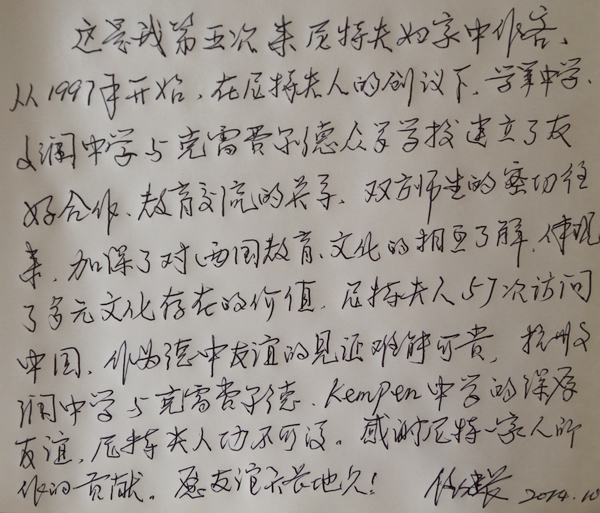 这是我第五次来尼特夫妇家中作客、
从1997年开始，在尼特夫人的创议下，学军中学、
文澜中学与克雷菲尔德众学学校建立了友
好合作、教育交流的关系。双方师生的密切往
来，加深了对两国教育、文化的相互了解，体现
了多元文化存在的价值，尼特夫人57次访问
中国，作为德中友谊的见证难能可贵，杭州文
澜中学与克雷菲尔德、Kempen中学的深厚
友谊，尼特夫人功不可没。感谢尼特一家人所
作的贡献。愿友谊天长地久！ 2014.10